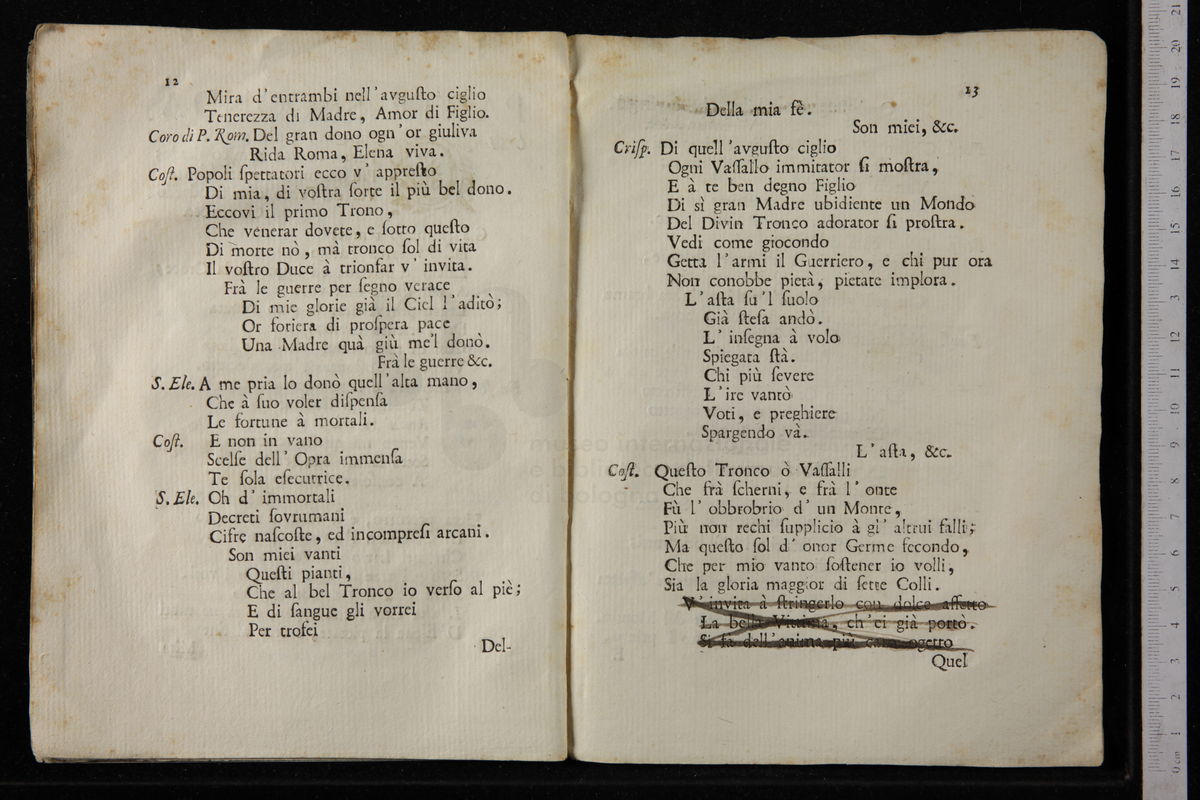 12
Mira d'entrambi nell'avguſto ciglio
Tenerezza di Madre, Amor di Figlio.
Coro di P. Rom. Del gran dono ogn'or giuliva
Rida Roma, Elena viva.
Coſt. Popoli ſpettatori ecco v' appreſto
Di mia, di voſtra ſorte il più bel dono.
Eccovi il primo Trono,
Che venerar dovete, e ſotto queſto
Di morte nò, mà tronco ſol di vita
Il voſtro Duce à trionfar v' invita.
Frà le guerre per ſegno verace
Di mie glorie già il Ciel l'aditò;
Or foriera di proſpera pace
Una Madre quà giù me'l donò.
Frà le guerre &c.
S. Ele. A me pria lo donò quell'alta mano,
Che à ſuo voler diſpenſa
Le fortune à mortali.
Coſt. E non in vano
Scelſe dell' Opra immenſa
Te ſola eſecutrice.
S. Ele. Oh d' immortali
Decreti ſovrumani
Cifre naſcoſte, ed incompreſi arcani.
Son miei vanti
Queſti pianti,
Che al bel Tronco io verſo al piè;
E di ſangue gli vorrei
Per trofei
Del-
13
Della mia fè.
Son miei, &c.
Criſp. Di quell'avguſto ciglio
Ogni Vaſſallo immitator ſi moſtra,
E à te ben degno Figlio
Di sì gran Madre ubidiente un Mondo
Del Divin Tronco adorator ſi proſtra.
Vedi come giocondo
Getta l'armi il Guerriero, e chi pur ora
Non conobbe pietà, pietate implora.
L'aſta ſu'l ſuolo
Già ſteſa andò.
L' inſegna à volo
Spiegata ſtà.
Chi più ſevere
L'ire vantò
Voti, e preghiere
Spargendo và.
L'aſta, &c.
Coſt. Queſto Tronco ò Vaſſalli
Che frà ſcherni, e frà l' onte
Fù l' obbrobrio d' un Monte,
Più non rechi ſupplicio à gl' altrui falli;
Ma queſto ſol d' onor Germe fecondo,
Che per mio vanto ſoſtener io volli,
Sia la gloria maggior di ſette Colli.
V' invita à ſtringerlo con dolce affetto
La bella Vittima, ch'ei già portò.
Si fà dell'anima più caro ogetto
Quel